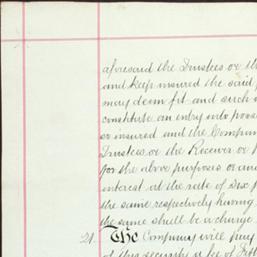 aforesaid the Trustees or th
and keep insured the said
may deem fit and such
constitute an entry into poss
so insured and the Compan
Trustees or the Receiver or
for the above purposes or an
interest at the rate of Six p
the same respectively having
the same shall be a charge
21. The Company will pay
of this security a fee of Fift